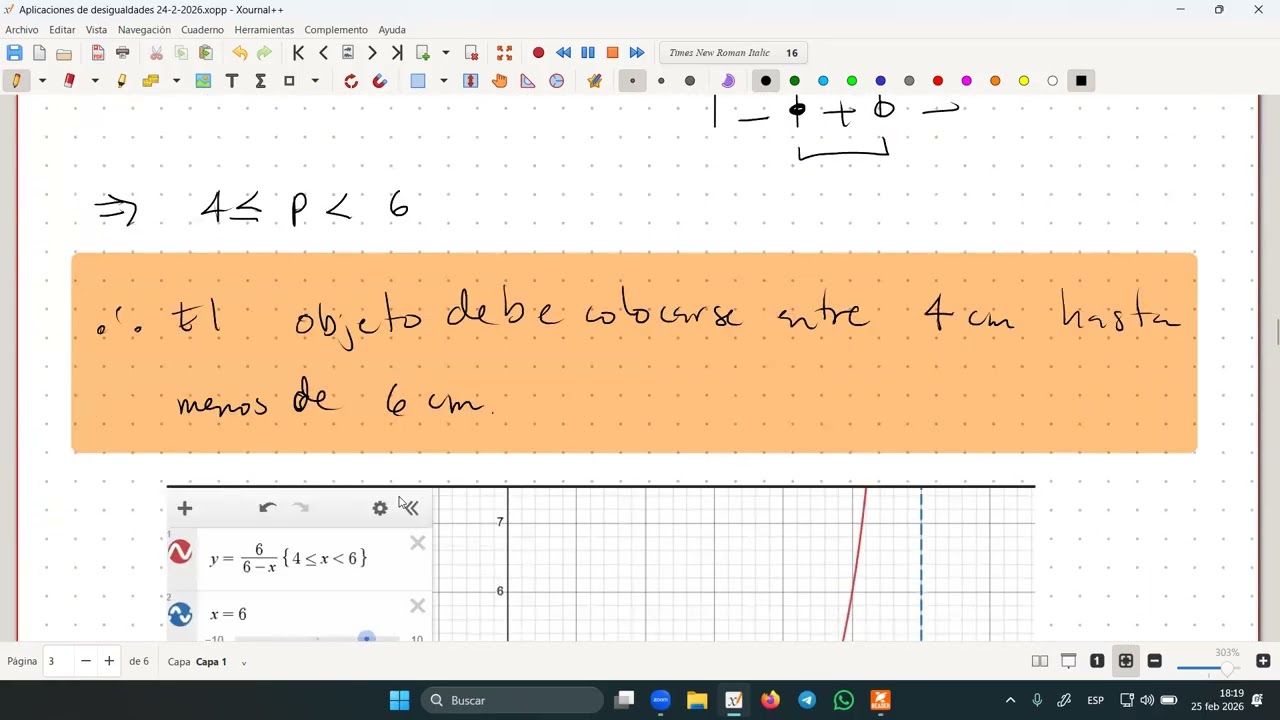 Aplicaciones de desigualdades 24-2-2026.xopp - Xournal++
Archivo Editar Vista Navegación Cuaderno Herramientas Complemento Ayuda
Times New Roman Italic 16
| - + -
⇒ 4 ≤ p < 6
∴ El objeto debe colocarse entre 4 cm hasta
menos de 6 cm.
1
y = 6/(6-x) {4 ≤ x < 6}
2
x = 6
-10 10
7
6
Página 3 de 6 Capa Capa 1
303%
Buscar
zoom
READER
ESP
18:19
25 feb 2026